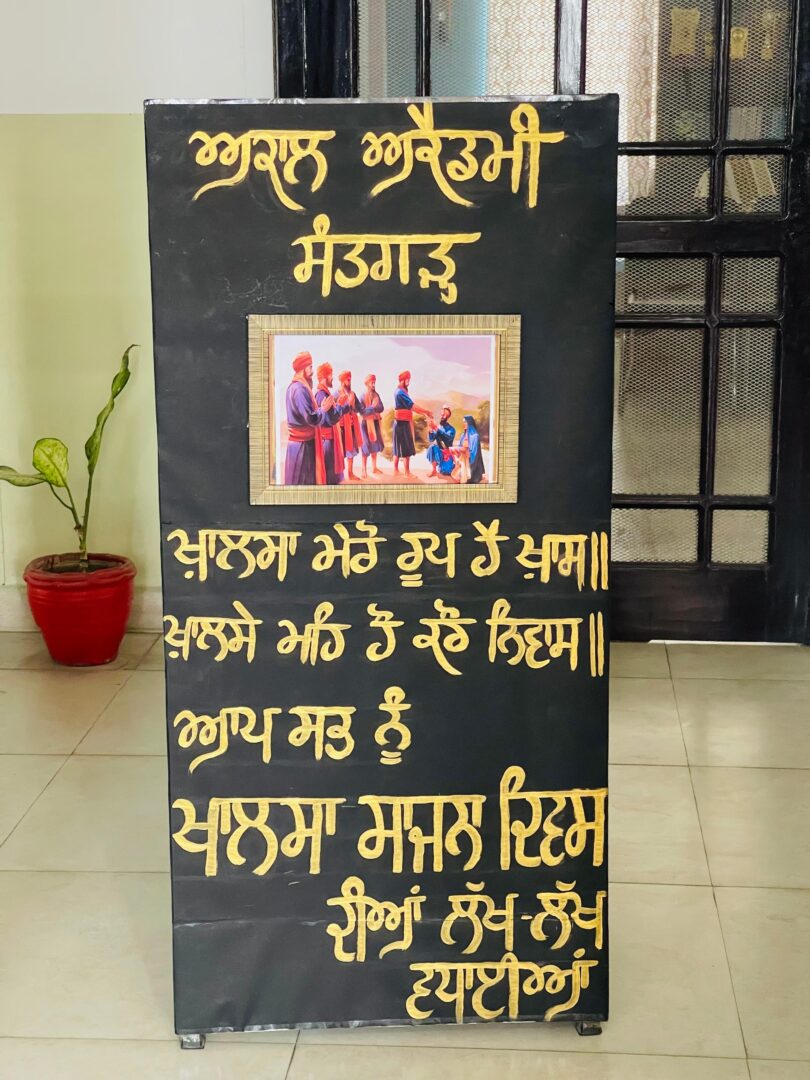 ਅਕਾਲ ਅਕੈਡਮੀ
ਮੰਤਗੜ੍ਹ
ਖ਼ਾਲਸਾ ਮੇਰੋ ਰੂਪ ਹੈ ਖ਼ਾਸ॥
ਖ਼ਾਲਸੇ ਮਹਿ ਹੋ ਕਰੌ ਨਿਵਾਸ॥
ਆਪ ਸਭ ਨੂੰ
ਖਾਲਸਾ ਸਾਜਨਾ ਦਿਵਸ
ਦੀਆਂ ਲੱਖ-ਲੱਖ
ਵਧਾਈਆਂ